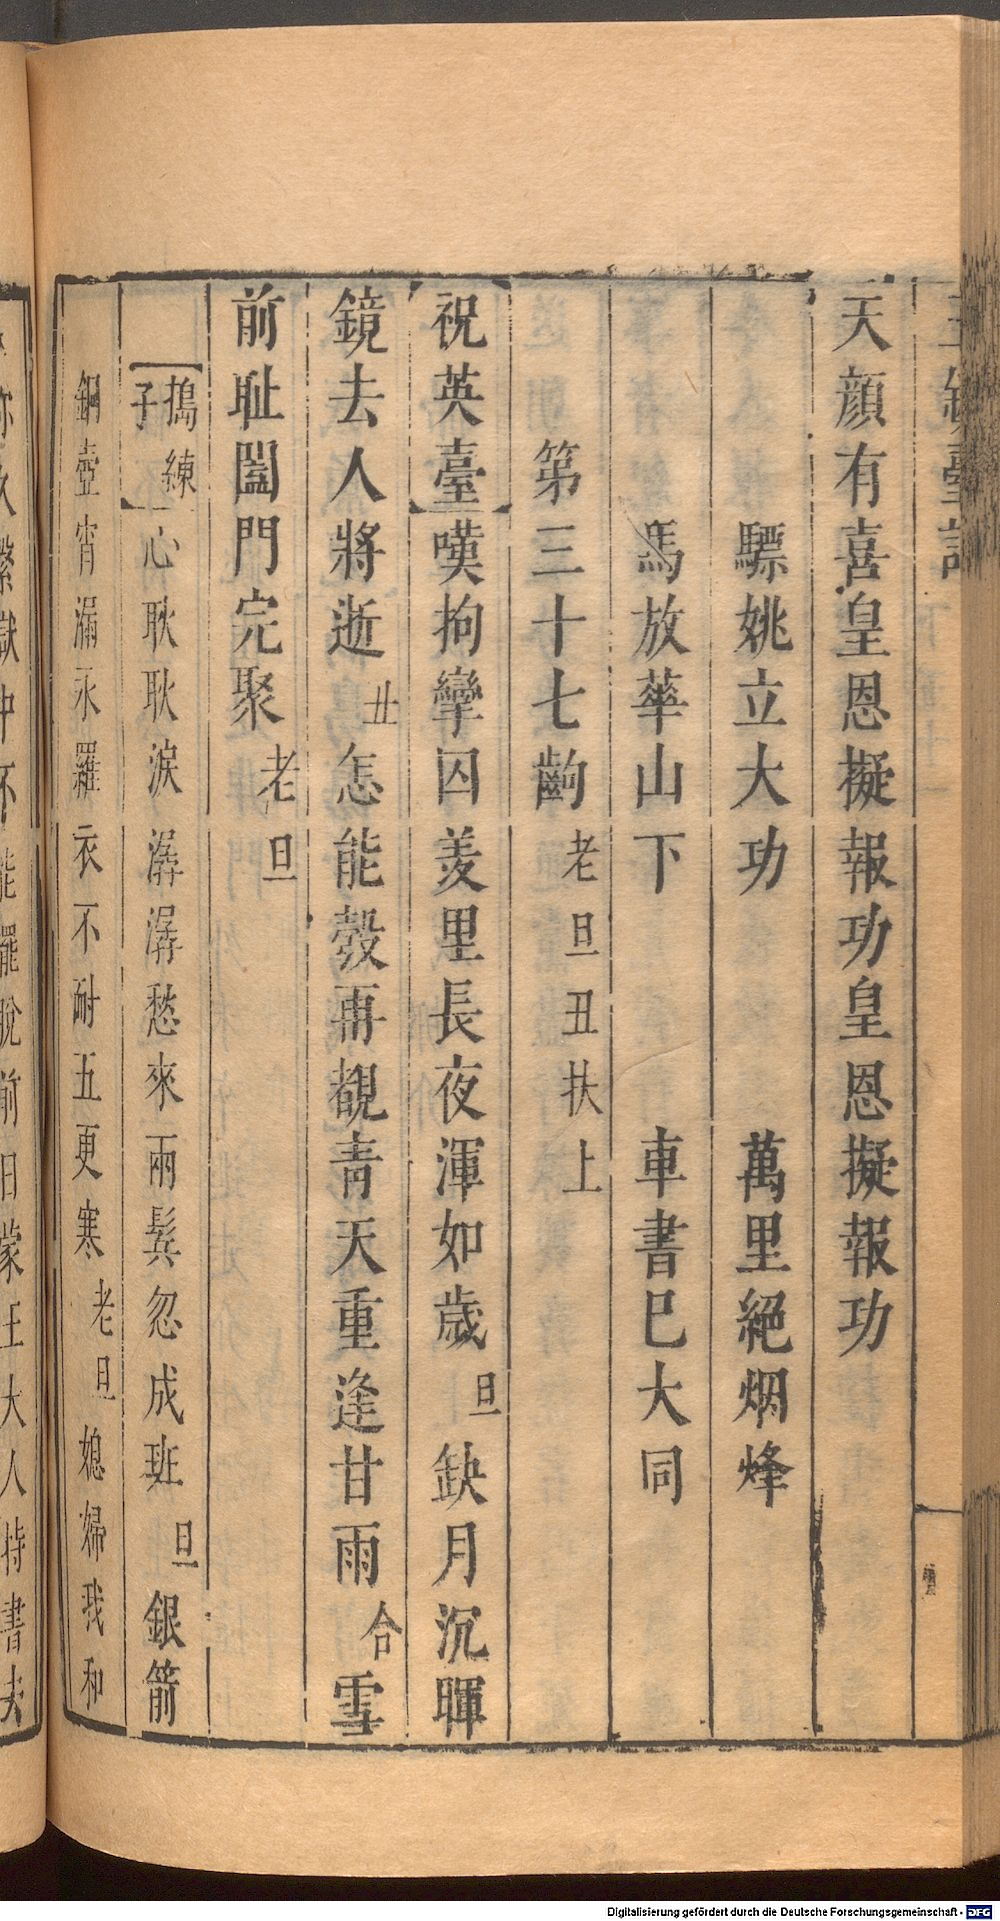 天顏有喜皇恩擬報功皇恩擬報功
驃姚立大功　萬里絕烟烽
馬放華山下　車書已大同
第三十七齣 老旦丑扶上
【祝英臺】嘆拘攣囚羑里長夜渾如歲 旦 缺月沉暉
鏡去人將逝 丑 怎能彀再覩青天重逢甘雨 合 雪
前耻闔門完聚 老旦
【搗練子】心耿耿淚潺潺愁來兩鬂忽成班 旦 銀箭
銅壺宵漏永羅衣不耐五更寒 老旦 媳婦我和
Digitalisierung gefördert durch die Deutsche Forschungsgemeinschaft - DFG